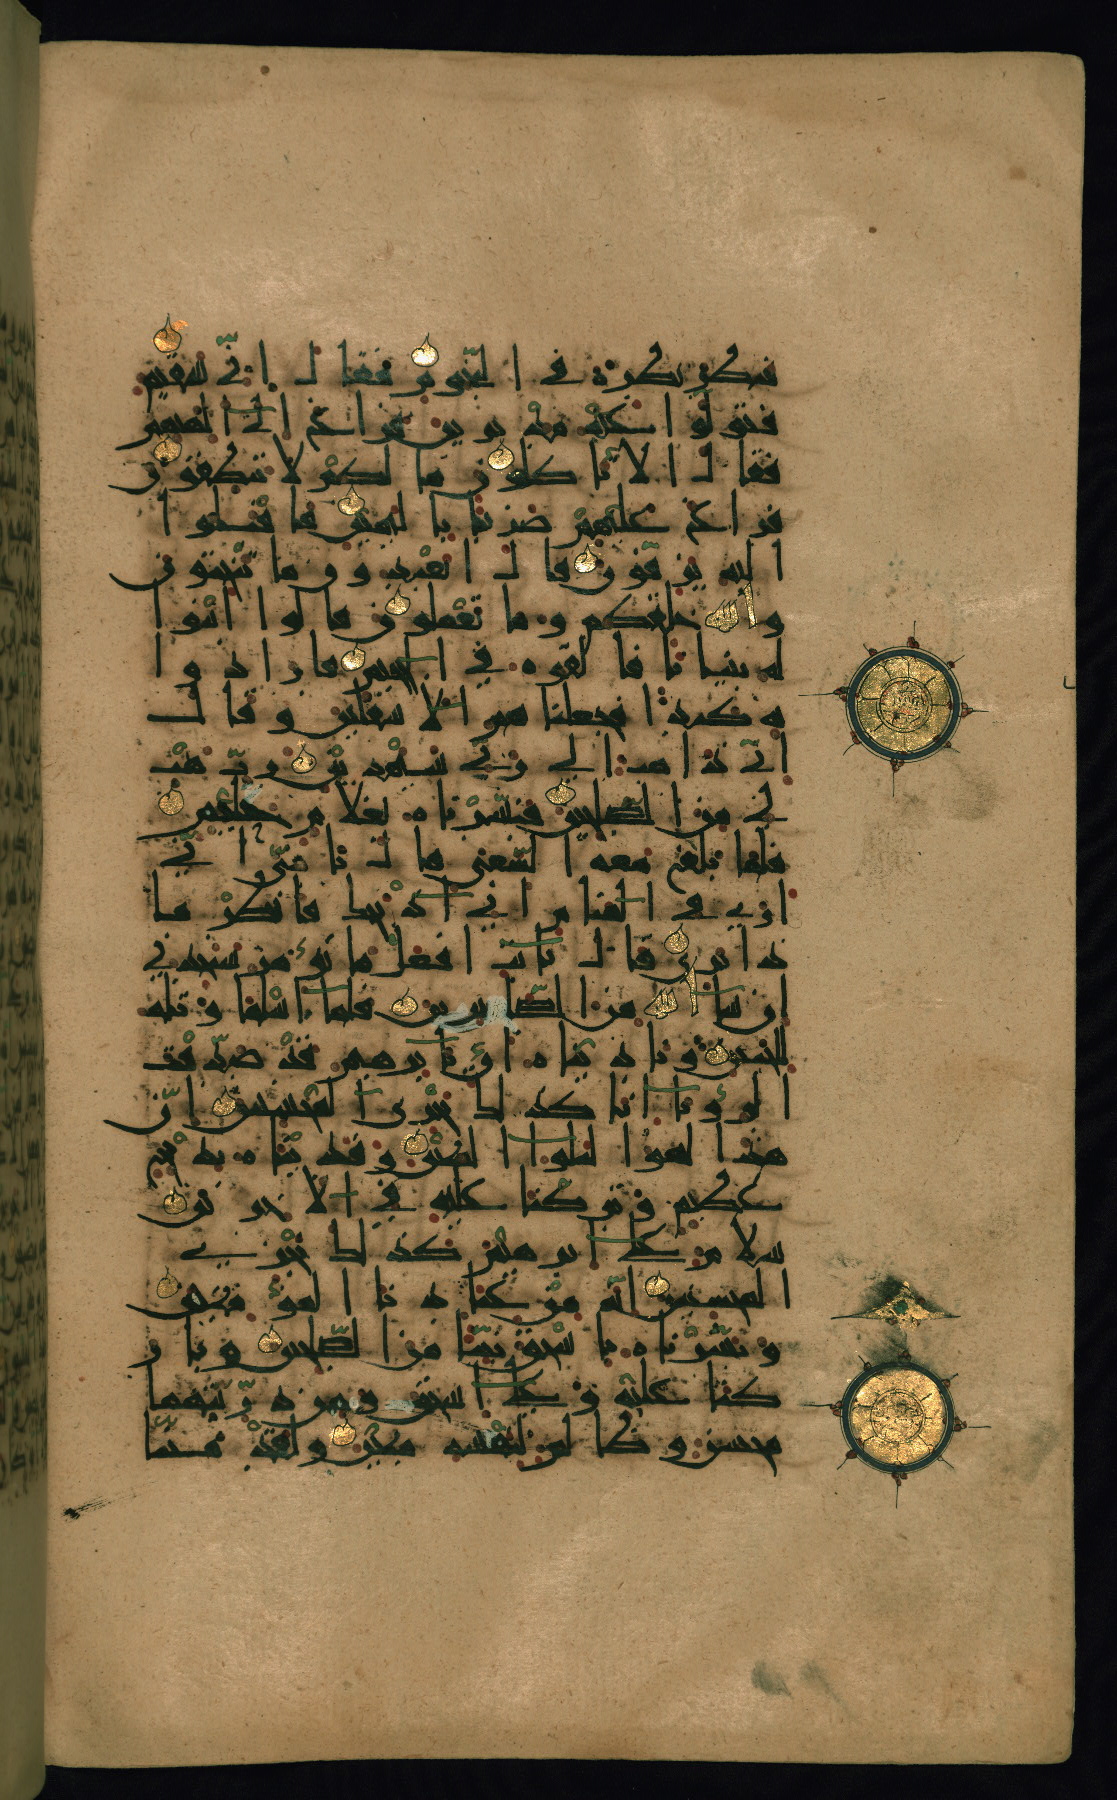 فنظر نظرة في النجوم فقال اني سقيم
فتولوا عنه مدبرين فراغ الى الهتهم
فقال الا تاكلون ما لكم لا تنطقون
فراغ عليهم ضربا باليمين فاقبلوا
اليه يزفون قال اتعبدون ما تنحتون
والله خلقكم وما تعملون قالوا ابنوا
له بنيانا فالقوه في الجحيم فارادوا
به كيدا فجعلناهم الاسفلين وقال
اني ذاهب الى ربي سيهدين رب هب
لي من الصلحين فبشرناه بغلام حليم
فلما بلغ معه السعي قال يا بني اني
ارى في المنام اني اذبحك فانظر ما
ذا ترى قال يا ابت افعل ما تؤمر ستجدني
ان شا الله من الصابرين فلما اسلما وتله
للجبين وناديناه ان يا ابرهيم قد صدقت
الرؤيا انا كذلك نجزي المحسنين ان
هذا لهو البلوا المبين وفديناه بذبح
عظيم وتركنا عليه في الاخرين
سلام على ابرهيم كذلك نجزي
المحسنين انه من عبادنا المؤمنين
وبشرناه باسحق نبيا من الصلحين وبار
كنا عليه وعلى اسحق ومن ذريتهما
محسن وظالم لنفسه مبين ولقد مننا